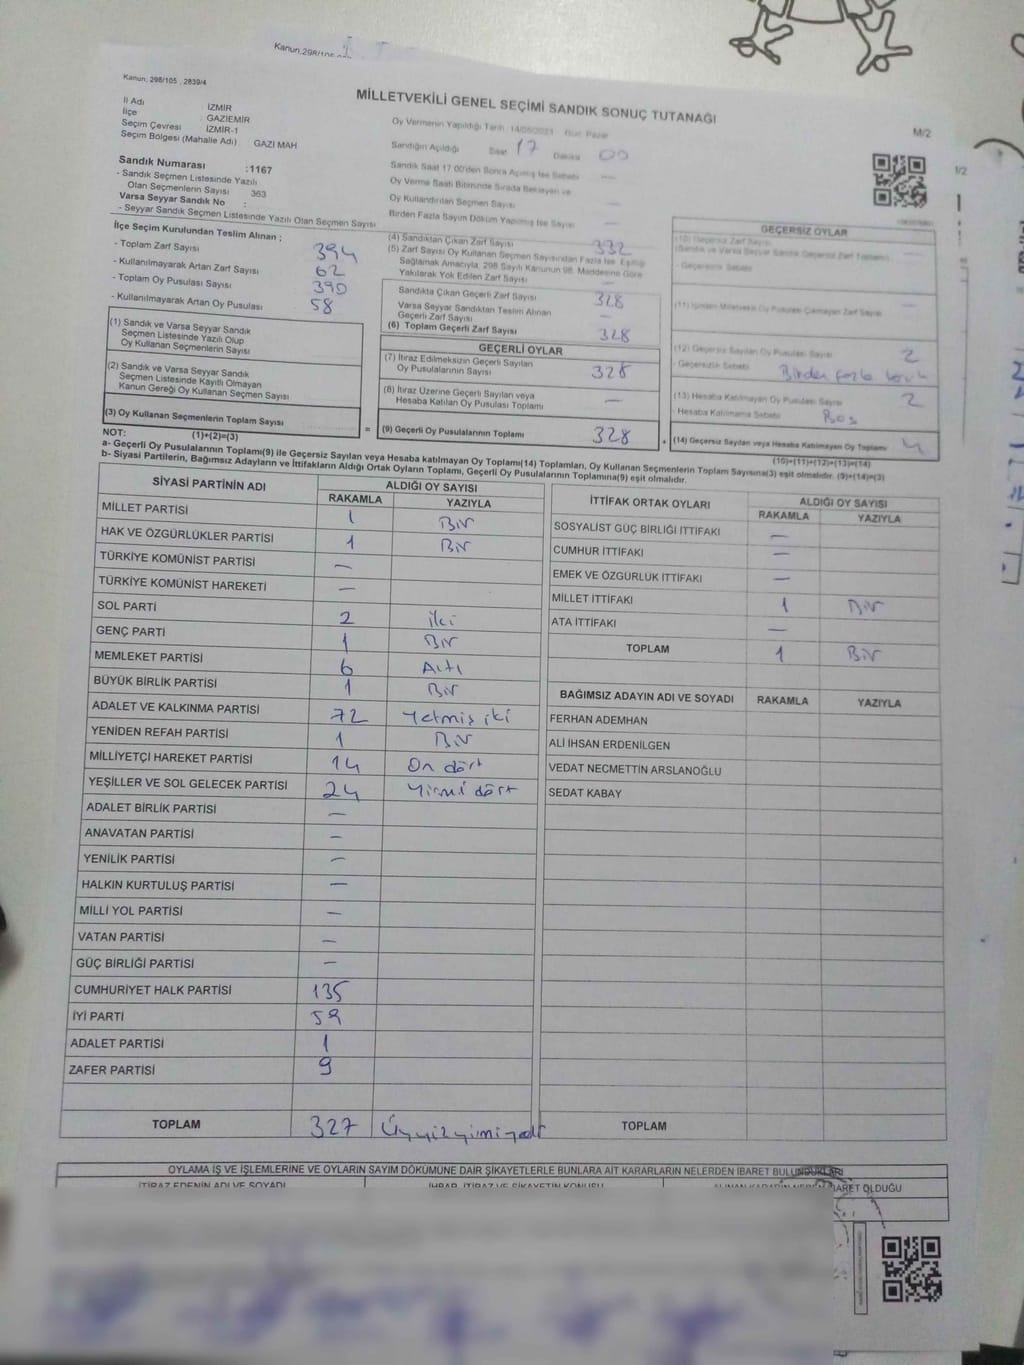 Kanun, 298/105
Kanun, 298/105 , 2839/4
MİLLETVEKİLİ GENEL SEÇİMİ SANDIK SONUÇ TUTANAĞI
M/2
1/2
İl Adı : İZMİR
İlçe : GAZİEMİR
Seçim Çevresi İZMİR-1
Seçim Bölgesi (Mahalle Adı) GAZİ MAH
Sandık Numarası :1167
- Sandık Seçmen Listesinde Yazılı
Olan Seçmenlerin Sayısı 363
Varsa Seyyar Sandık No :
- Seyyar Sandık Seçmen Listesinde Yazılı Olan Seçmen Sayısı
Oy Vermenin Yapıldığı Tarih Gün: Pazar
Sandığın Açıldığı Saat 17 Dakika 00
Sandık Saat 17.00'den Sonra Açılmış İse Sebebi —
Oy Verme Saati Bitiminde Sırada Bekleyen ve
Oy Kullandırılan Seçmen Sayısı —
Birden Fazla Sayım Döküm Yapılmış İse Sayısı —
İlçe Seçim Kurulundan Teslim Alınan :
- Toplam Zarf Sayısı 394
- Kullanılmayarak Artan Zarf Sayısı 62
- Toplam Oy Pusulası Sayısı 390
- Kullanılmayarak Artan Oy Pusulası 58
(1) Sandık ve Varsa Seyyar Sandık
Seçmen Listesinde Yazılı Olup
Oy Kullanan Seçmenlerin Sayısı
(2) Sandık ve Varsa Seyyar Sandık
Seçmen Listesinde Kayıtlı Olmayan
Kanun Gereği Oy Kullanan Seçmen Sayısı
(3) Oy Kullanan Seçmenlerin Toplam Sayısı
(1)+(2)=(3)
(4) Sandıktan Çıkan Zarf Sayısı 332
(5) Zarf Sayısı Oy Kullanan Seçmen Sayısından Fazla İse Eşitliği
Sağlamak Amacıyla, 298 Sayılı Kanunun 98. Maddesine Göre
Yakılarak Yok Edilen Zarf Sayısı —
Sandıkta Çıkan Geçerli Zarf Sayısı 328
Varsa Seyyar Sandıktan Teslim Alınan
Geçerli Zarf Sayısı —
(6) Toplam Geçerli Zarf Sayısı 328
GEÇERLİ OYLAR
(7) İtiraz Edilmeksizin Geçerli Sayılan
Oy Pusulalarının Sayısı 328
(8) İtiraz Üzerine Geçerli Sayılan veya
Hesaba Katılan Oy Pusulası Toplamı —
= (9) Geçerli Oy Pusulalarının Toplamı 328 +
GEÇERSİZ OYLAR
(10) Geçersiz Zarf Sayısı
(Sandık ve Varsa Seyyar Sandık Geçersiz Zarf Toplamı) —
- Geçersizlik Sebebi
(11) İçinden Milletvekili Oy Pusulası Çıkmayan Zarf Sayısı —
(12) Geçersiz Sayılan Oy Pusulası Sayısı 2
- Geçersizlik Sebebi Birden fazla
(13) Hesaba Katılmayan Oy Pusulası Sayısı 2
- Hesaba Katılmama Sebebi Boş
(14) Geçersiz Sayılan veya Hesaba Katılmayan Oy Toplamı 4
(10)+(11)+(12)+(13)=(14)
NOT:
a- Geçerli Oy Pusulasının Toplamı(9) ile Geçersiz Sayılan veya Hesaba katılmayan Oy Toplamı(14) Toplamları, Oy Kullanan Seçmenlerin Toplam Sayısına(3) eşit olmalıdır. (9)+(14)=(3)
b- Siyasi Partilerin, Bağımsız Adayların ve İttifakların Aldığı Ortak Oyların Toplamı, Geçerli Oy Pusulalarının Toplamına(9) eşit olmalıdır.
SİYASİ PARTİNİN ADI ALDIĞI OY SAYISI
RAKAMLA YAZIYLA
MİLLET PARTİSİ 1 Bir
HAK VE ÖZGÜRLÜKLER PARTİSİ 1 Bir
TÜRKİYE KOMÜNİST PARTİSİ —
TÜRKİYE KOMÜNİST HAREKETİ —
SOL PARTİ 2 iki
GENÇ PARTİ 1 Bir
MEMLEKET PARTİSİ 6 Altı
BÜYÜK BİRLİK PARTİSİ 1 Bir
ADALET VE KALKINMA PARTİSİ 72 Yetmiş iki
YENİDEN REFAH PARTİSİ 1 Bir
MİLLİYETÇİ HAREKET PARTİSİ 14 On dört
YEŞİLLER VE SOL GELECEK PARTİSİ 24 Yirmi dört
ADALET BİRLİK PARTİSİ —
ANAVATAN PARTİSİ —
YENİLİK PARTİSİ —
HALKIN KURTULUŞ PARTİSİ —
MİLLİ YOL PARTİSİ —
VATAN PARTİSİ —
GÜÇ BİRLİĞİ PARTİSİ —
CUMHURİYET HALK PARTİSİ 135
İYİ PARTİ 59
ADALET PARTİSİ 1
ZAFER PARTİSİ 9
TOPLAM 327 Üçyüzyirmiyedi
İTTİFAK ORTAK OYLARI ALDIĞI OY SAYISI
RAKAMLA YAZIYLA
SOSYALİST GÜÇ BİRLİĞİ İTTİFAKI —
CUMHUR İTTİFAKI —
EMEK VE ÖZGÜRLÜK İTTİFAKI —
MİLLET İTTİFAKI 1 Bir
ATA İTTİFAKI —
TOPLAM 1 Bir
BAĞIMSIZ ADAYIN ADI VE SOYADI RAKAMLA YAZIYLA
FERHAN ADEMHAN
ALİ İHSAN ERDENİLGEN
VEDAT NECMETTİN ARSLANOĞLU
SEDAT KABAY
TOPLAM
OYLAMA İŞ VE İŞLEMLERİNE VE OYLARIN SAYIM DÖKÜMÜNE DAİR ŞİKAYETLERLE BUNLARA AİT KARARLARIN NELERDEN İBARET BULUNDUKLARI
İTİRAZ EDENİN ADI VE SOYADI İHBAR, İTİRAZ VE ŞİKAYETİN KONUSU ALINAN KARARIN NEDEN İBARET OLDUĞU